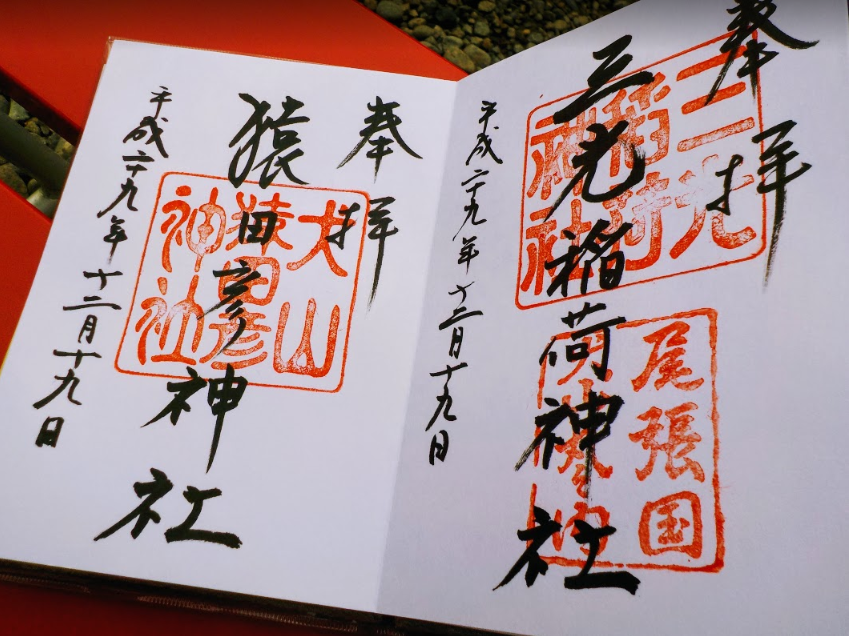 奉拝
三光
稲荷
神社
三光稲荷神社
尾張国
平成二十九年十二月十九日
奉拝
犬山
猿田彦
神社
猿田彦神社
平成二十九年十二月十九日